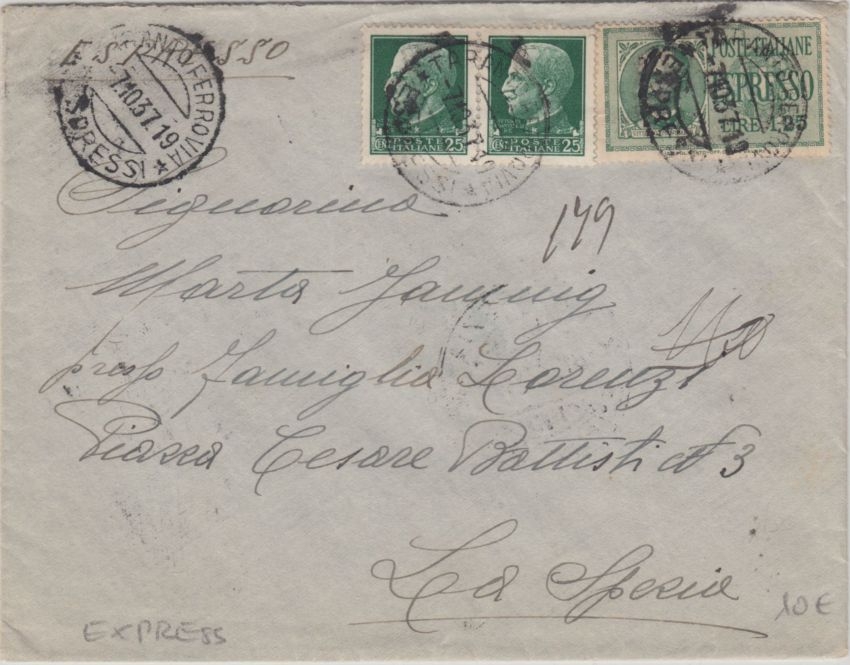 ESPRESSO
TARANTO FERROVIA
7.10.37.19
ESPRESSI
POSTE ITALIANE
CEN 25
POSTE ITALIANE
CEN 25
POSTE ITALIANE
ESPRESSO
LIRE 1,25
Signorina
179
Marta Janning
presso Famiglia Lorenzi
Piazza Cesare Battisti N 3
La Spezia
EXPRESS
10€